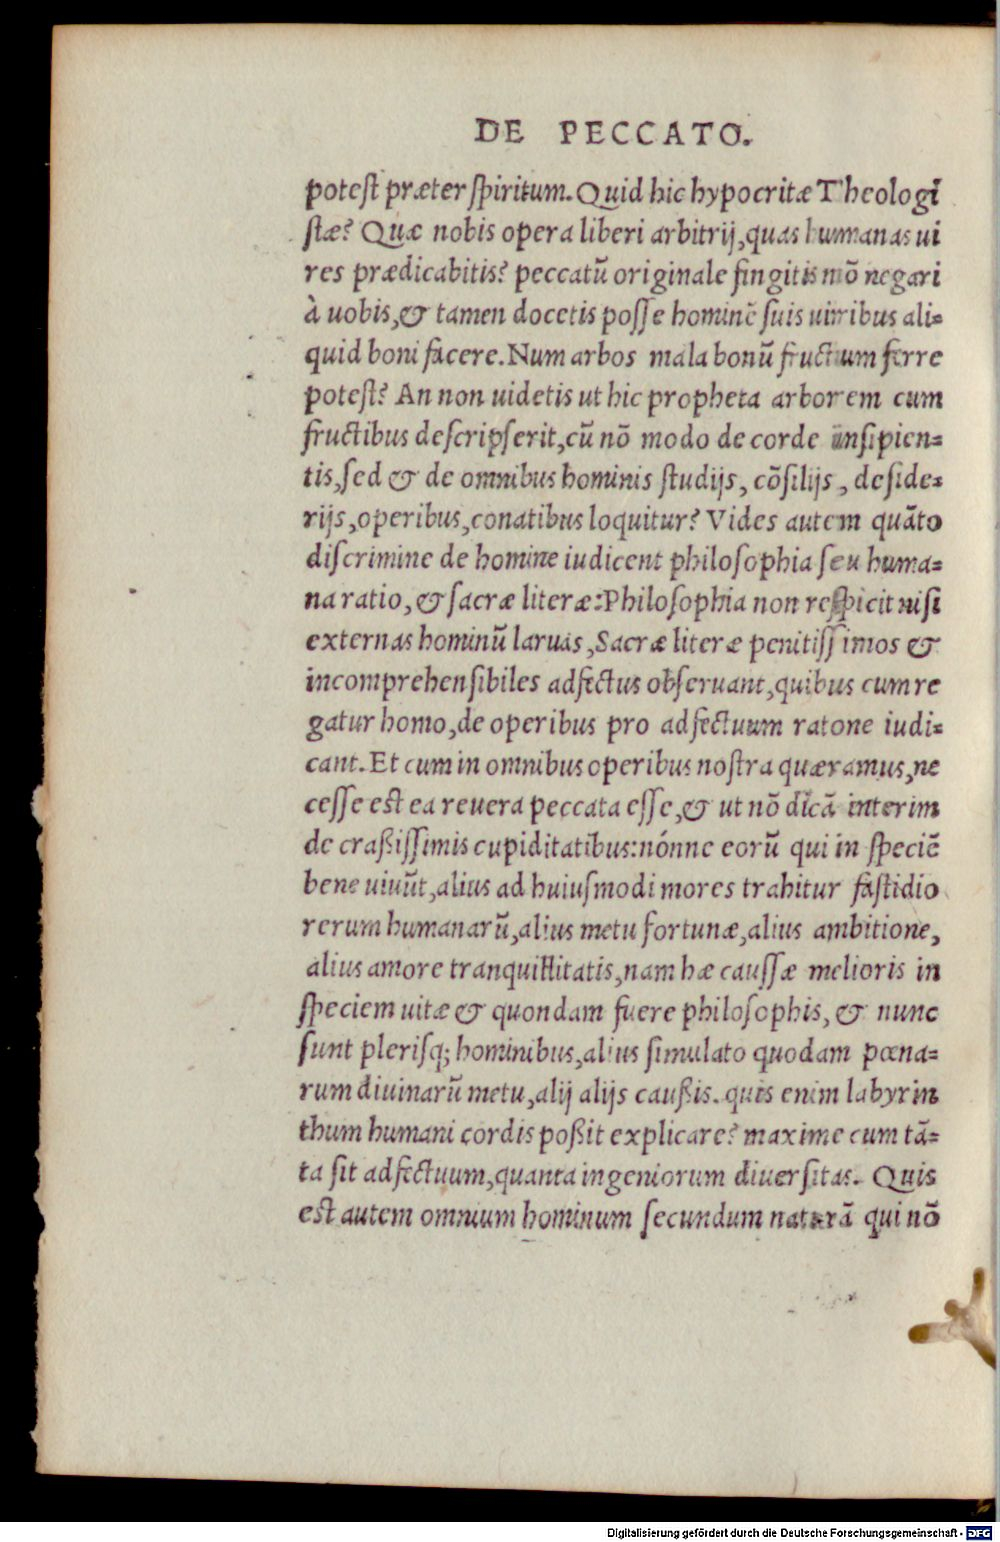 DE PECCATO.
potest præter spiritum. Quid hic hypocritæ Theologi
stæ? Quæ nobis opera liberi arbitrij, quas humanas ui
res prædicabitis? peccatū originale fingitis nō negari
à uobis, & tamen docetis posse hominē suis uiribus ali=
quid boni facere. Num arbos mala bonū fructum ferre
potest? An non uidetis ut hic propheta arborem cum
fructibus descripserit, cū nō modo de corde insipien=
tis, sed & de omnibus hominis studijs, cōsilijs, deside=
rijs, operibus, conatibus loquitur? Vides autem quāto
discrimine de homine iudicent philosophia seu huma=
na ratio, & sacræ literæ: Philosophia non respicit nisi
externas hominū laruas, Sacræ literæ penitissimos &
incomprehensibiles adfectus obseruant, quibus cum re
gatur homo, de operibus pro adfectuum ratone iudi=
cant. Et cum in omnibus operibus nostra quæramus, ne
cesse est ea reuera peccata esse, & ut nō dicā interim
de craßissimis cupiditatibus: nónne eorū qui in speciē
bene uiuūt, alius ad huiusmodi mores trahitur fastidio
rerum humanarū, alius metu fortunæ, alius ambitione,
alius amore tranquillitatis, nam hæ caussæ melioris in
speciem uitæ & quondam fuere philosophis, & nunc
sunt plerisq; hominibus, alius simulato quodam pœna=
rum diuinarū metu, alij alijs caußis. quis enim labyrin
thum humani cordis poßit explicare? maxime cum tā=
ta sit adfectuum, quanta ingeniorum diuersitas. Quis
est autem omnium hominum secundum naturā qui nō
Digitalisierung gefördert durch die Deutsche Forschungsgemeinschaft - DFG